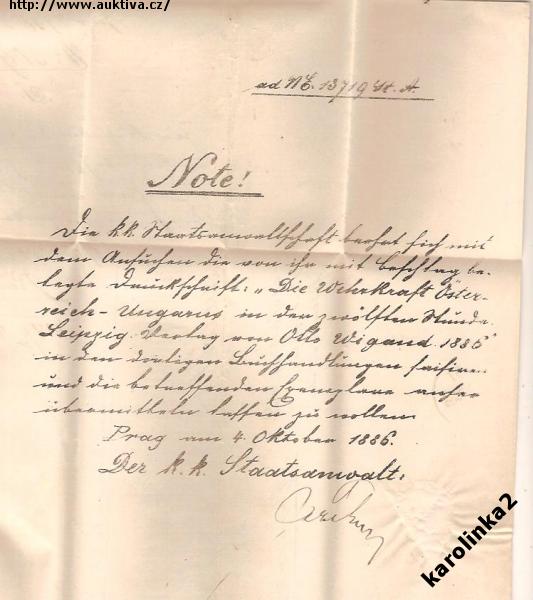 http://www.auktiva.cz/
ad NE. 13719 St. A.
Note!
Die k.k. Staatsanwaltschaft beehrt sich mit
dem Ansuchen die von ihr mit Beschlag be-
legte Druckschrift: „Die Wehrkraft Öster-
reich-Ungarns in der zwölften Stunde
Leipzig Verlag von Otto Wigand 1886"
in den dortigen Buchhandlungen saisiren
und die betreffenden Exemplare anher
übermitteln lassen zu wollen.
Prag am 4. Oktober 1886.
Der k.k. Staatsanwalt:
karolinka2